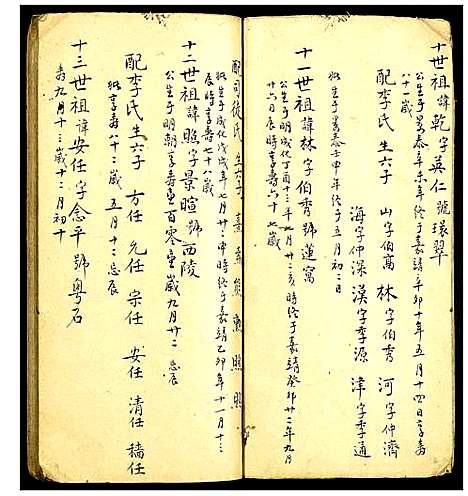 十世祖諱乾字英仁號環翠
公生于景泰辛未年終于嘉靖辛卯十年五月十四日享壽
八十一歲
配李氏生六子 山字伯高 林字伯秀 河字仲濟
海字仲深 漢字季源 津字季通
妣生于景泰壬申年終于五月初二日
十一世祖諱林字伯秀號蓮窩
公生于明成化丁酉十三年七月廿二亥時終于嘉靖癸卯廿二年九月
廿六日辰時享壽六十七歲
配司徒氏生六子 照 照
妣生于成化戊戌年七月廿二申時終于嘉靖乙卯年十一月十三
辰時享壽七十八歲
十二世祖諱照字景暄號西陵
公生于明朝享壽壹百零壹歲九月廿二忌辰
配李氏生六子 方任 元任 宗任 安任 清任 穡任
妣享壽八十二歲五月十二忌辰
十三世祖諱安任字念平號粵石
壽九月十三歲十二月初十